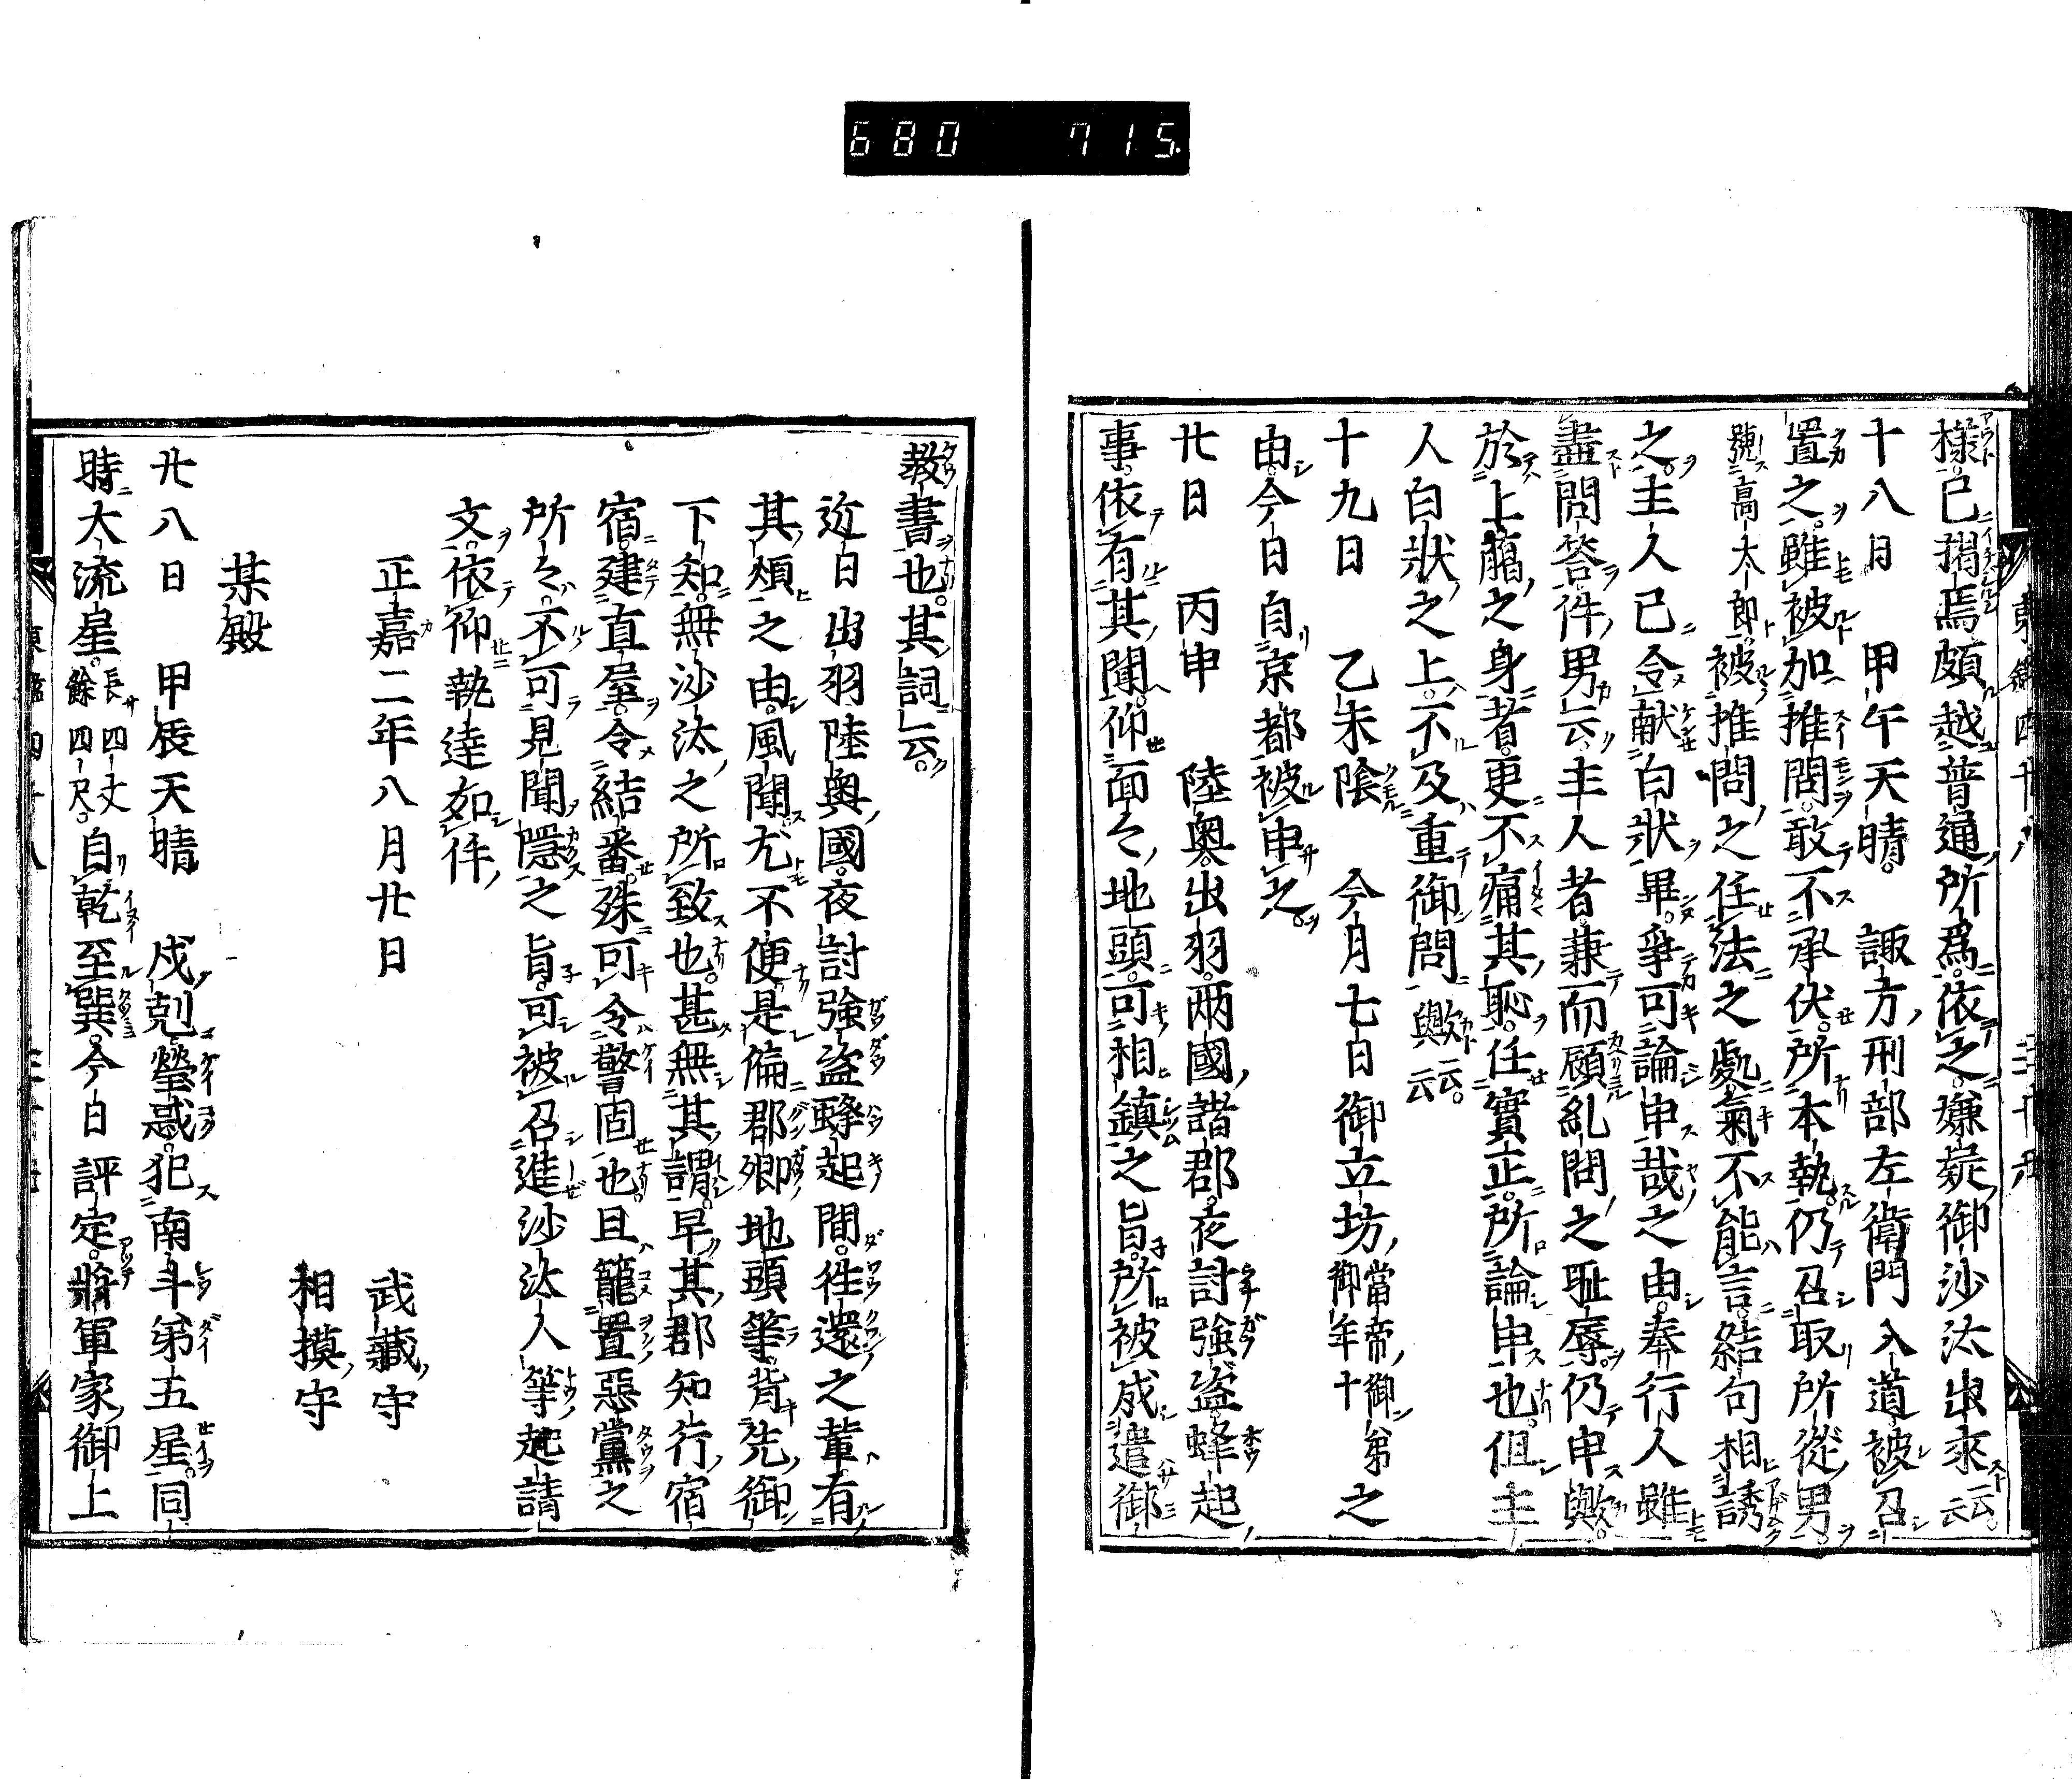 680 715.
樣。已揭焉。頗越普通所爲。依之嫌疑御沙汰出來云云。
十八日 甲午天晴。 諏方刑部左衛門入道被召
置之。雖被加推問。敢不承伏。所本執。仍召取所從男。
號高太郎。被推問之任法之處。氣不能言。結句相誘
之。主人已令献白狀畢。爭可論申哉之由。奉行人雖
盡問答。件男云。主人者。兼而顧糺問之耻辱。仍申歟。
於上﨟之身者。更不痛其恥。任實正。所論申也。但主
人白狀之上。不及重御問歟云云。
十九日 乙未陰 今月七日御立坊。當帝御弟御年十之
由。今日自京都被申之。
廿日 丙申 陸奥出羽。兩國諸郡。夜討強盗蜂起
事。依有其聞。仰面々地頭。可相鎮之旨。所被成遣御
教書也。其詞云。
近日出羽陸奥國。夜討強盗蜂起間。往還之輩有
其煩之由。風聞。尤不便。是偏郡郷地頭等。背先御
下知。無沙汰之所致也。甚無其謂。早其郡知行宿
宿。建直屋。令結番。殊可令警固也。且籠置惡黨之
所々。不可見聞隱之旨。可被召進沙汰人等起請
文。依仰執達如件
正嘉二年八月廿日
武藏守
相摸守
某殿
廿八日 甲辰天晴 戌剋。熒惑。犯南斗第五星。同
時大流星。長四丈餘四尺。自乾至巽。今日評定。將軍家御上